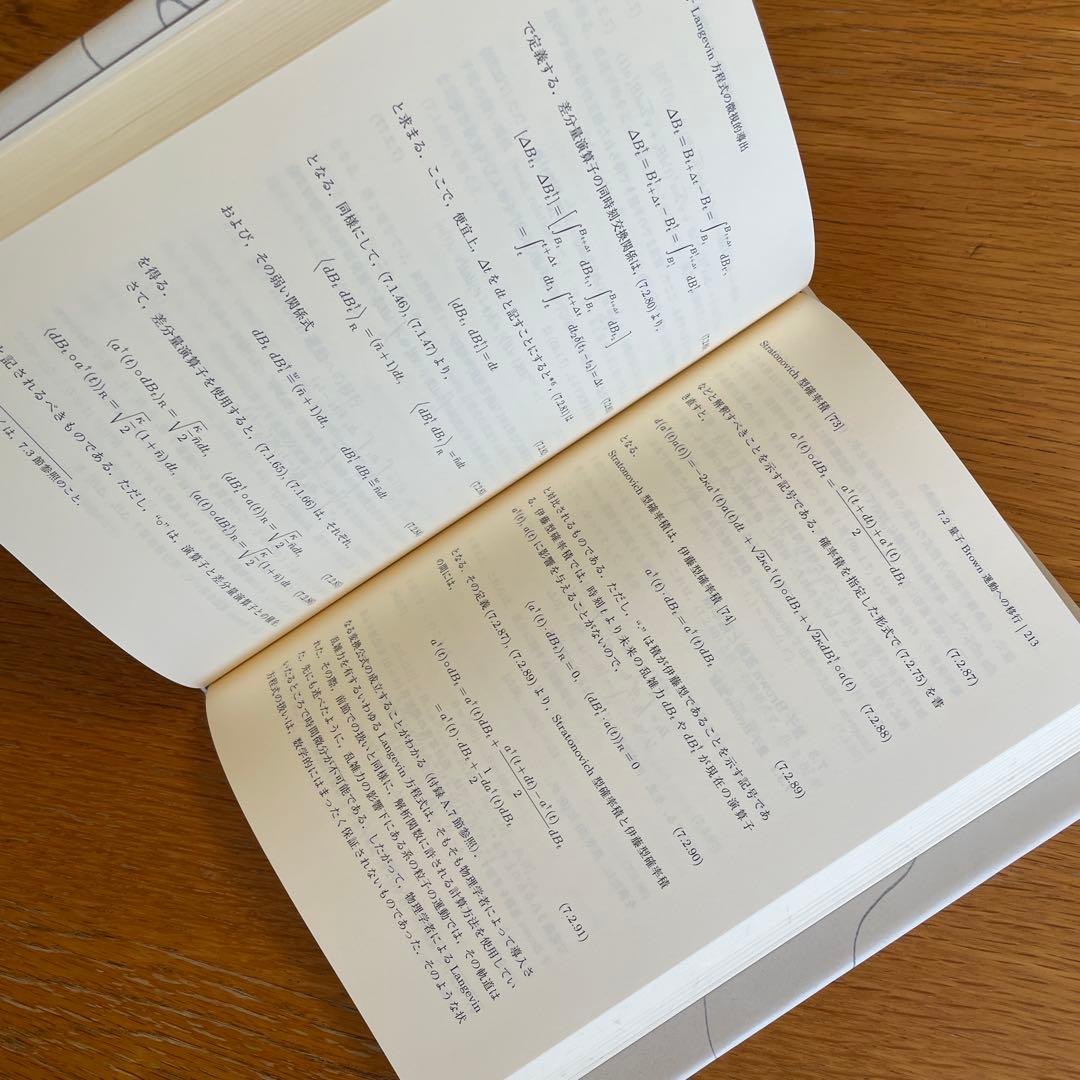 Langevin 方程式の微視的導出
ΔB_t = B_{t+Δt} − B_t = ∫_{B_t}^{B_{t+Δt}} dB_{t'}
ΔB_t^† = B_{t+Δt}^† − B_t^† = ∫_{B_t^†}^{B_{t+Δt}^†} dB_{t'}^†
で定義する．差分量演算子の同時刻交換関係は，(7.2.80) より，
= ∫_t^{t+Δt} dt_1 ∫_t^{t+Δt} dt_2 δ(t_1 − t_2) = Δt,
と求まる．ここで，便宜上，Δt を dt と記すことにすると*6，(7.2.81) は
[dB_t, dB_t^†] = dt
となる．同様にして，(7.1.46), (7.1.47) より，
⟨dB_t dB_t^†⟩_R = (n̄+1)dt, ⟨dB_t^† dB_t⟩_R = n̄dt
および，その弱い関係式
dB_t dB_t^† ≝^w (n̄+1)dt, dB_t^† dB_t =^w n̄dt
を得る．
さて，差分量演算子を使用すると，(7.1.65), (7.1.66) は，それぞれ，
と記されるべきものである．ただし，“○”は，演算子と差分量演算子との積を
は，7.3 節参照のこと．
7.2 量子 Brown 運動への移行 | 213
Stratonovich 型確率積 [73]
a^†(t)○dB_t = (a^†(t+dt) + a^†(t))/2 dB_t (7.2.87)
などと解釈すべきことを示す記号である．確率積を指定した形式で (7.2.75) を書
き直すと，
d(a^†(t)a(t)) = −2κa^†(t)a(t)dt + √2κ a^†(t)○dB_t + √2κ dB_t^†○a(t) (7.2.88)
となる．
Stratonovich 型確率積は，伊藤型確率積 [74]
a^†(t)·dB_t = a^†(t)dB_t (7.2.89)
と対比されるものである．ただし，“·”は積が伊藤型であることを示す記号であ
る．伊藤型確率積では，時刻 t より未来の乱雑力 dB_t や dB_t^† が現在の演算子
a^†(t), a(t) に影響を与えることがないので，
⟨a^†(t)·dB_t⟩_R = 0, ⟨dB_t^†·a(t)⟩_R = 0 (7.2.90)
となる．その定義 (7.2.87), (7.2.89) より，Stratonovich 型確率積と伊藤型確率積
の間には，
a^†(t)○dB_t = a^†(t)dB_t + (a^†(t+dt) − a^†(t))/2 dB_t
= a^†(t)·dB_t + 1/2 da^†(t)dB_t (7.2.91)
なる変換公式の成立することがわかる (付録 A.7 節参照)．
乱雑力を有するいわゆる Langevin 方程式は，そもそも物理学者によって導入さ
れた．その際，前節での扱いと同様に，解析関数に許される計算方法を使用してい
た．先にも述べたように，乱雑力の影響下にある系の粒子の運動では，その軌道は
いたるところで時間微分が不可能である．したがって，物理学者による Langevin
方程式の扱いは，数学的にはまったく保証されないものであった．そのような状